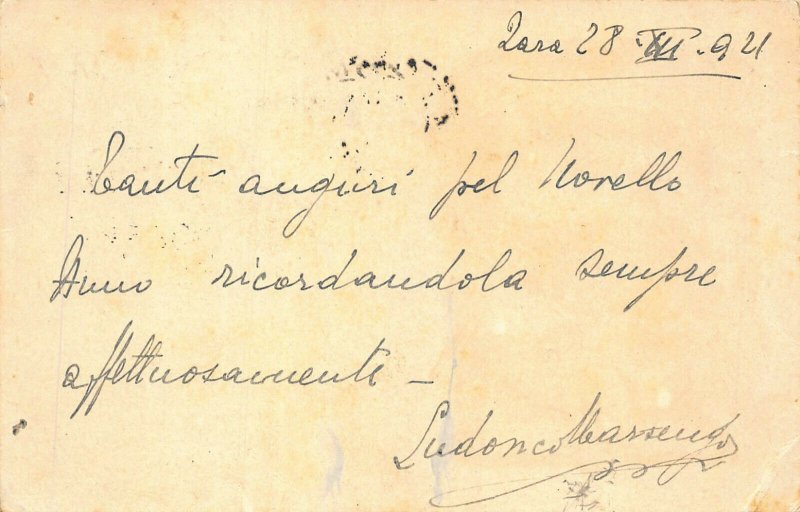 Zara 28 XII 921
Tanti auguri pel Novello
Anno ricordandola sempre
affettuosamente –
Ludovico